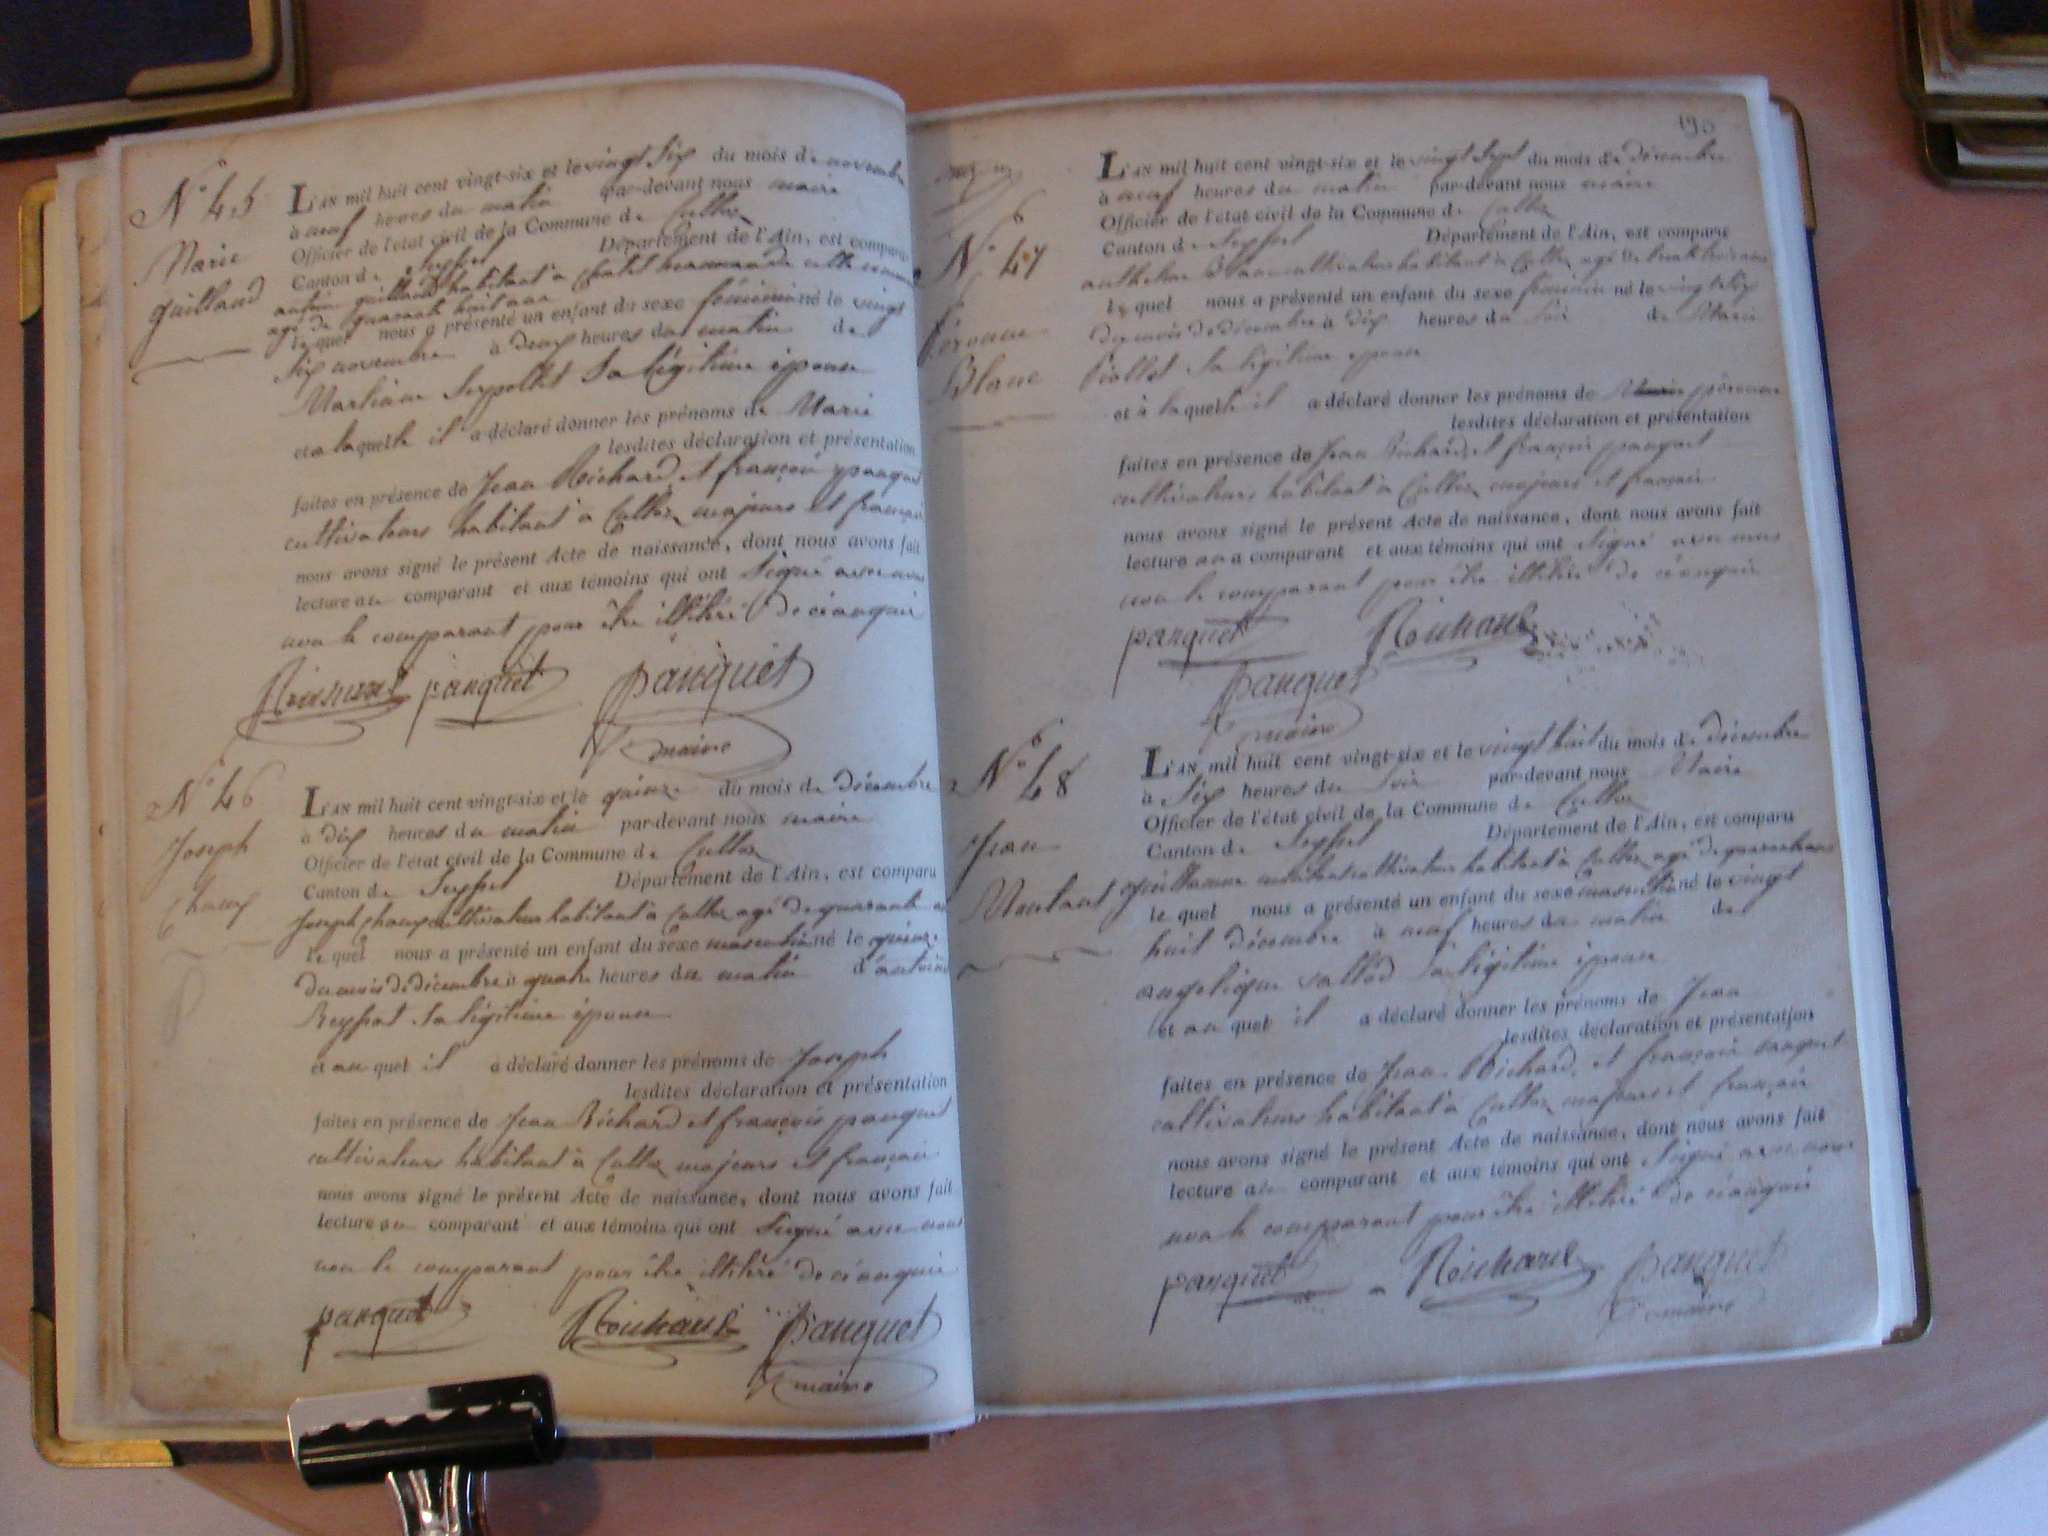 N° 45
Marie
guilland
L'AN mil huit cent vingt-six et le vingt Six du mois de novembre
à neuf heures du matin par-devant nous maire
Officier de l'état civil de la Commune de Culloz
Canton de Seyssel Département de l'Ain, est comparu
antoine guilland habitant à Chatel hameau de cette commune
agé de quarante huit ans
le quel nous a présenté un enfant du sexe féminin né le vingt
Six novembre à deux heures du matin de
Marliane Seypollet Sa légitime épouse
et a laquelle il a déclaré donner les prénoms de Marie
lesdites déclaration et présentation
faites en présence de Jean Richard et françois panquet
cultivateurs habitant à Culloz majeurs et français
nous avons signé le présent Acte de naissance, dont nous avons fait
lecture au comparant et aux témoins qui ont Signé avec nous
non le comparant pour être illitéré de ce enquis
Richard panquet panquet
maire
N° 46
Joseph
Chaux
L'AN mil huit cent vingt-six et le quinze du mois de décembre
à dix heures du matin par-devant nous maire
Officier de l'état civil de la Commune de Culloz
Canton de Seyssel Département de l'Ain, est comparu
Joseph Chaux cultivateur habitant à Culloz agé de quarante ans
le quel nous a présenté un enfant du sexe masculin né le quinze
du mois de décembre à quatre heures du matin d'antoine
Reyssat Sa légitime épouse
et au quel il a déclaré donner les prénoms de Joseph
lesdites déclaration et présentation
faites en présence de Jean Richard et françois panquet
cultivateurs habitant à Culloz majeurs et français
nous avons signé le présent Acte de naissance, dont nous avons fait
lecture au comparant et aux témoins qui ont Signé avec nous
non le comparant pour être illitéré de ce enquis
panquet Richard panquet
maire
195
N° 47
péronne
Blanc
L'AN mil huit cent vingt-six et le vingt Sept du mois de décembre
à neuf heures du matin par-devant nous maire
Officier de l'état civil de la Commune de Culloz
Canton de Seyssel Département de l'Ain, est comparu
anthelme Blanc cultivateur habitant à Culloz agé de trente trois ans
le quel nous a présenté un enfant du sexe féminin né le vingt Six
du mois de décembre à dix heures du Soir de Marie
piollet Sa légitime épouse
et à laquelle il a déclaré donner les prénoms de péronne
lesdites déclaration et présentation
faites en présence de Jean Richard et françois panquet
cultivateurs habitant à Culloz majeurs et français
nous avons signé le présent Acte de naissance, dont nous avons fait
lecture au comparant et aux témoins qui ont Signé avec nous
non le comparant pour être illitéré de ce enquis
panquet Richard
panquet
maire
N° 48
Jean
Montant
L'AN mil huit cent vingt-six et le vingt huit du mois de décembre
à Six heures du Soir par-devant nous Maire
Officier de l'état civil de la Commune de Culloz
Canton de Seyssel Département de l'Ain, est comparu
guillaume cultivateur habitant à Culloz agé de quarante ans
le quel nous a présenté un enfant du sexe masculin né le vingt
huit décembre à neuf heures du matin de
angelique vallod Sa légitime épouse
et au quel il a déclaré donner les prénoms de Jean
lesdites déclaration et présentation
faites en présence de Jean Richard et françois panquet
cultivateurs habitant à Culloz majeurs et français
nous avons signé le présent Acte de naissance, dont nous avons fait
lecture au comparant et aux témoins qui ont Signé avec nous
non le comparant pour être illitéré de ce enquis
panquet Richard panquet
maire